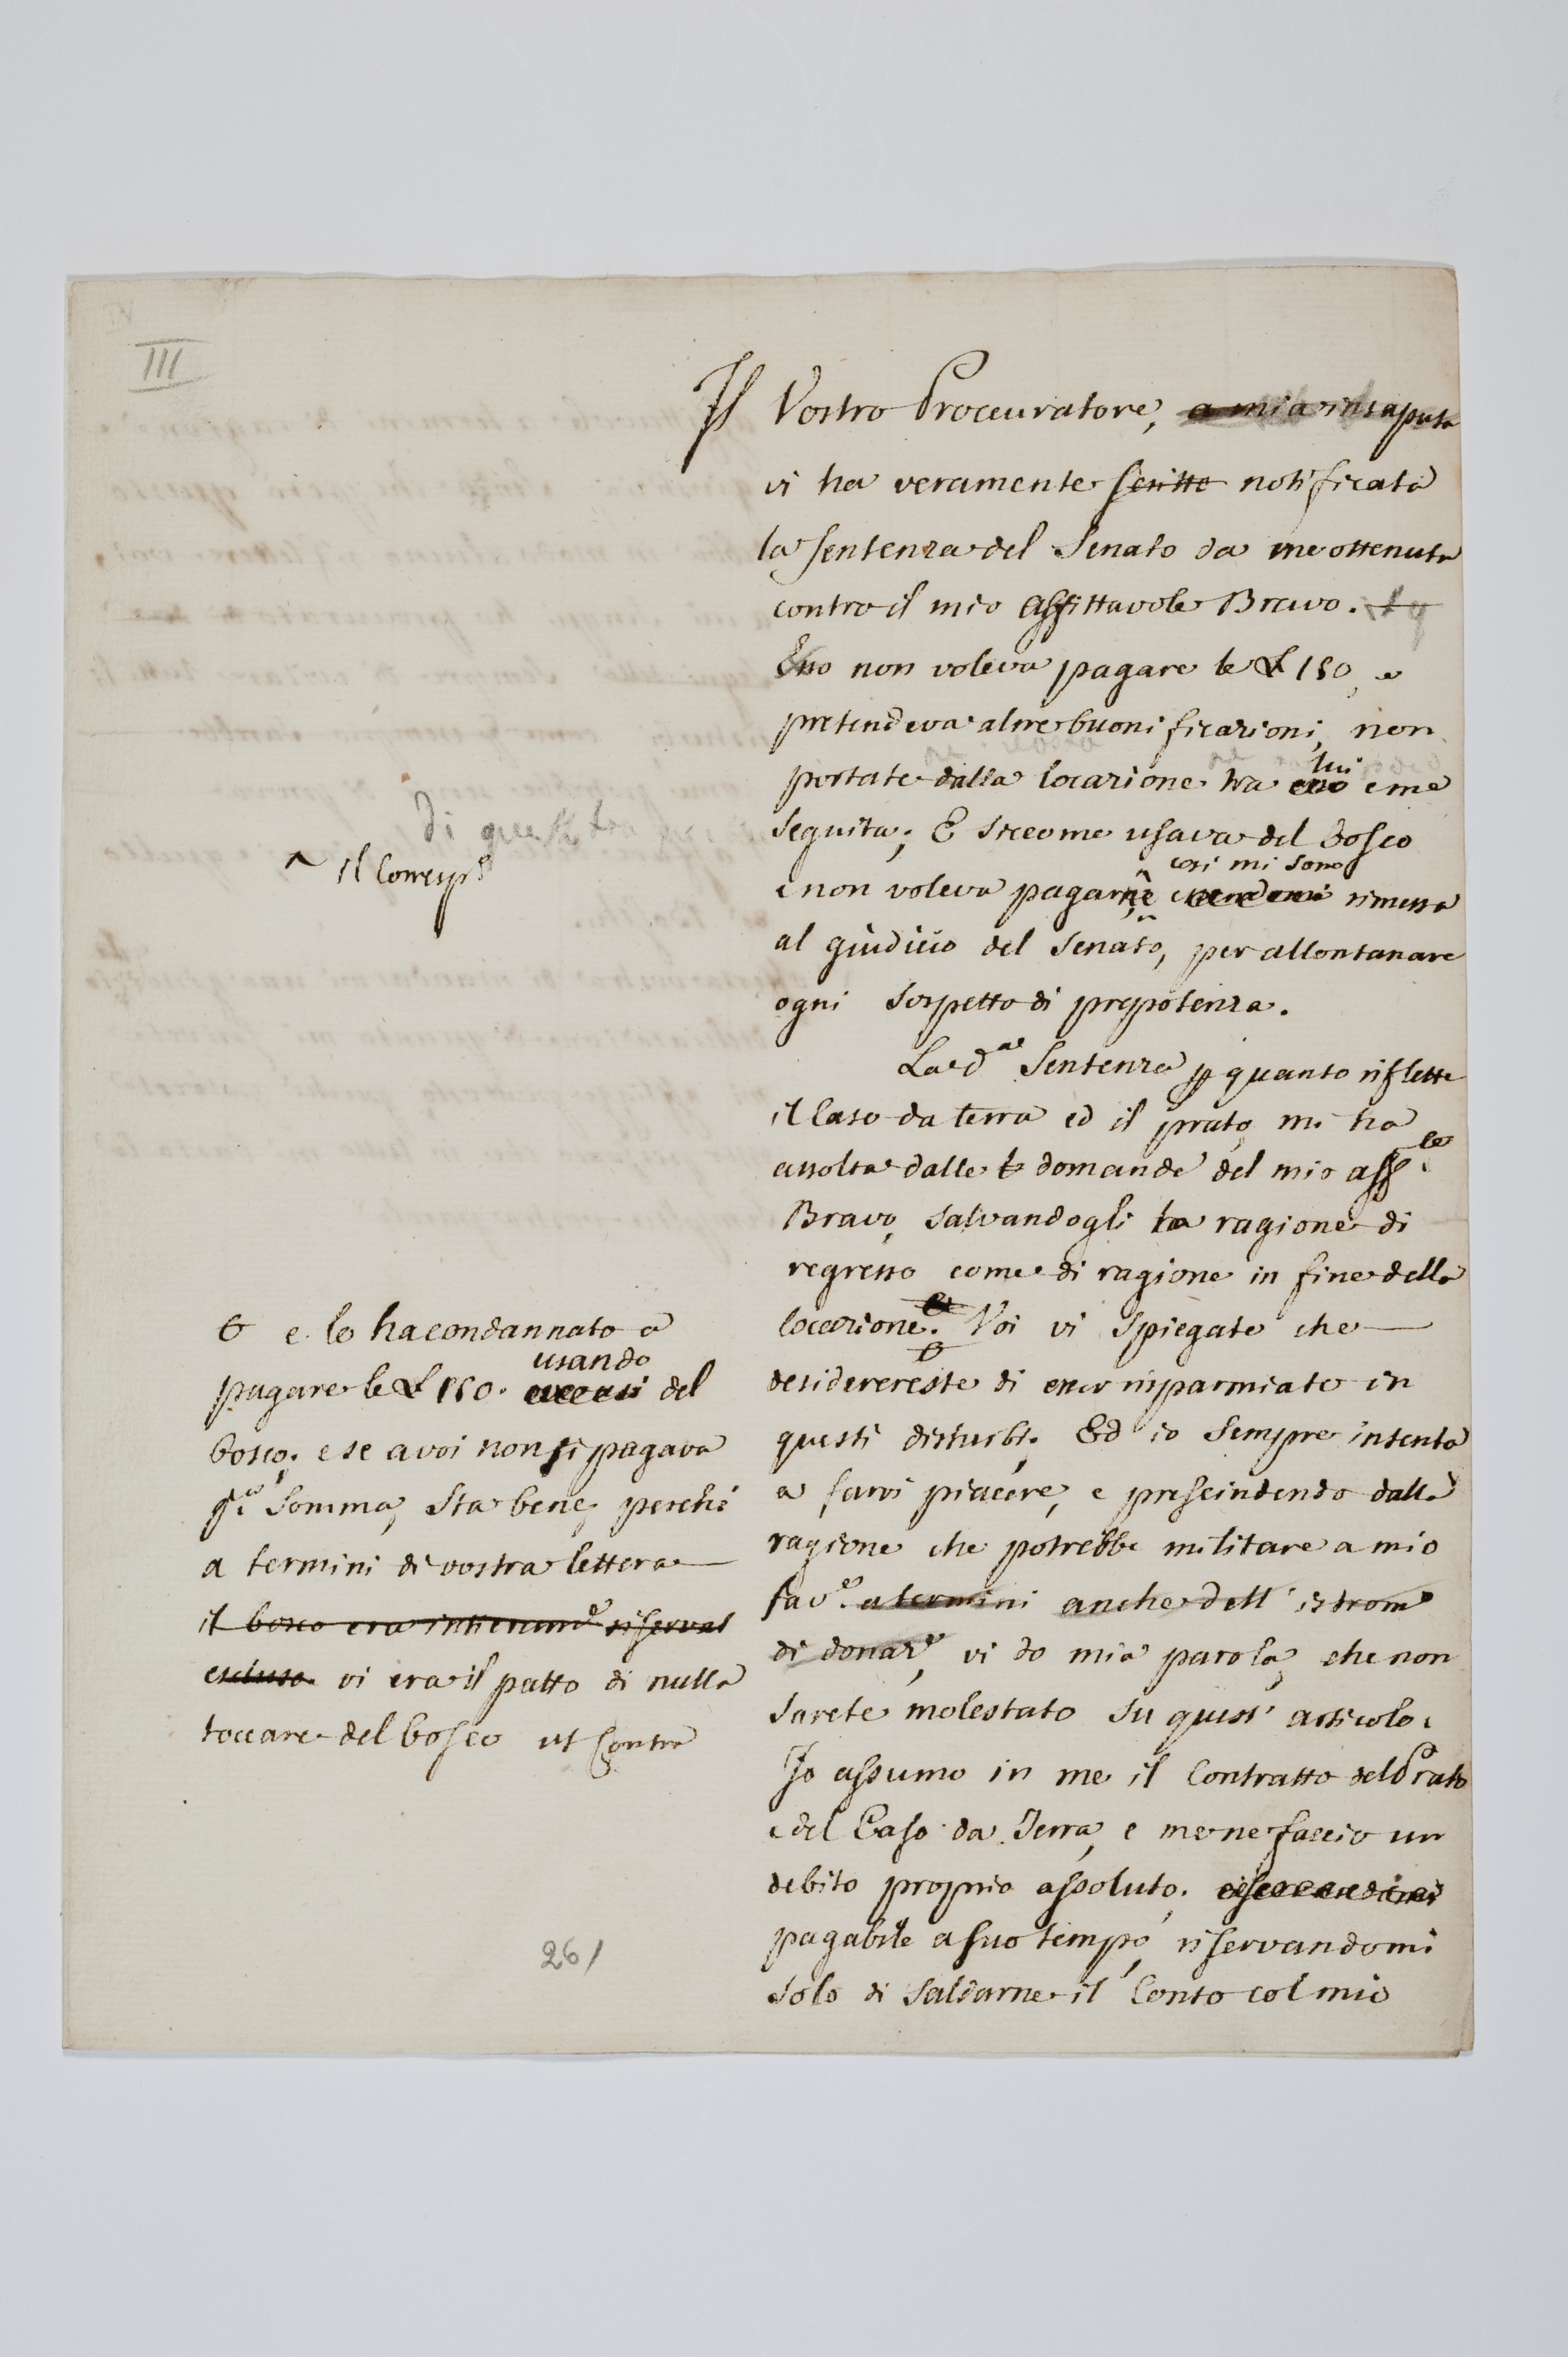 III
Il Vostro Proccuratore, a mia insaputa
vi ha veramente scritto notificata
la sentenza del Senato da me ottenuta
contro il mio affittavole Bravo.
Esso non voleva pagare le £ 150, e
pretendeva altre buonificazioni, non
portate dalla locazione tra esso lui e me
seguita; E siccome usava del bosco
e non voleva pagarne così mi sono rimessa
al giudicio del Senato, per allontanare
ogni sospetto di prepotenza.
La d.a Sentenza p quanto riflette
il Caso da terra ed il prato, mi ha
assolta dalle domande del mio aff.le
Bravo, salvandogli la ragione di
regresso come di ragione in fine della
locazione. Voi vi spiegate che
desiderereste di esser risparmiato in
questi disturbi. Ed io sempre intenta
a farvi piacere, e prescindendo dalla
ragione che potrebbe militare a mio
fav.e a termini anche dell' istrom.o
di donaz.e, vi do mia parola, che non
sarete molestato su quest' articolo.
Io assumo in me il Contratto del Prato
e del Caso da Terra, e me ne faccio un
debito proprio assoluto.
pagabile a suo tempo, riservandomi
solo di saldarne il Conto col mio
di questa
^ il Corresp.
e lo ha condannato a
pagare le £ 150. usando del
bosco. e se a voi non si pagava
q.a somma, sta bene, perchè
a termini di vostra lettera
il bosco era intieram.e riservat
escluso. vi era il patto di nulla
toccare del bosco ut contra
261